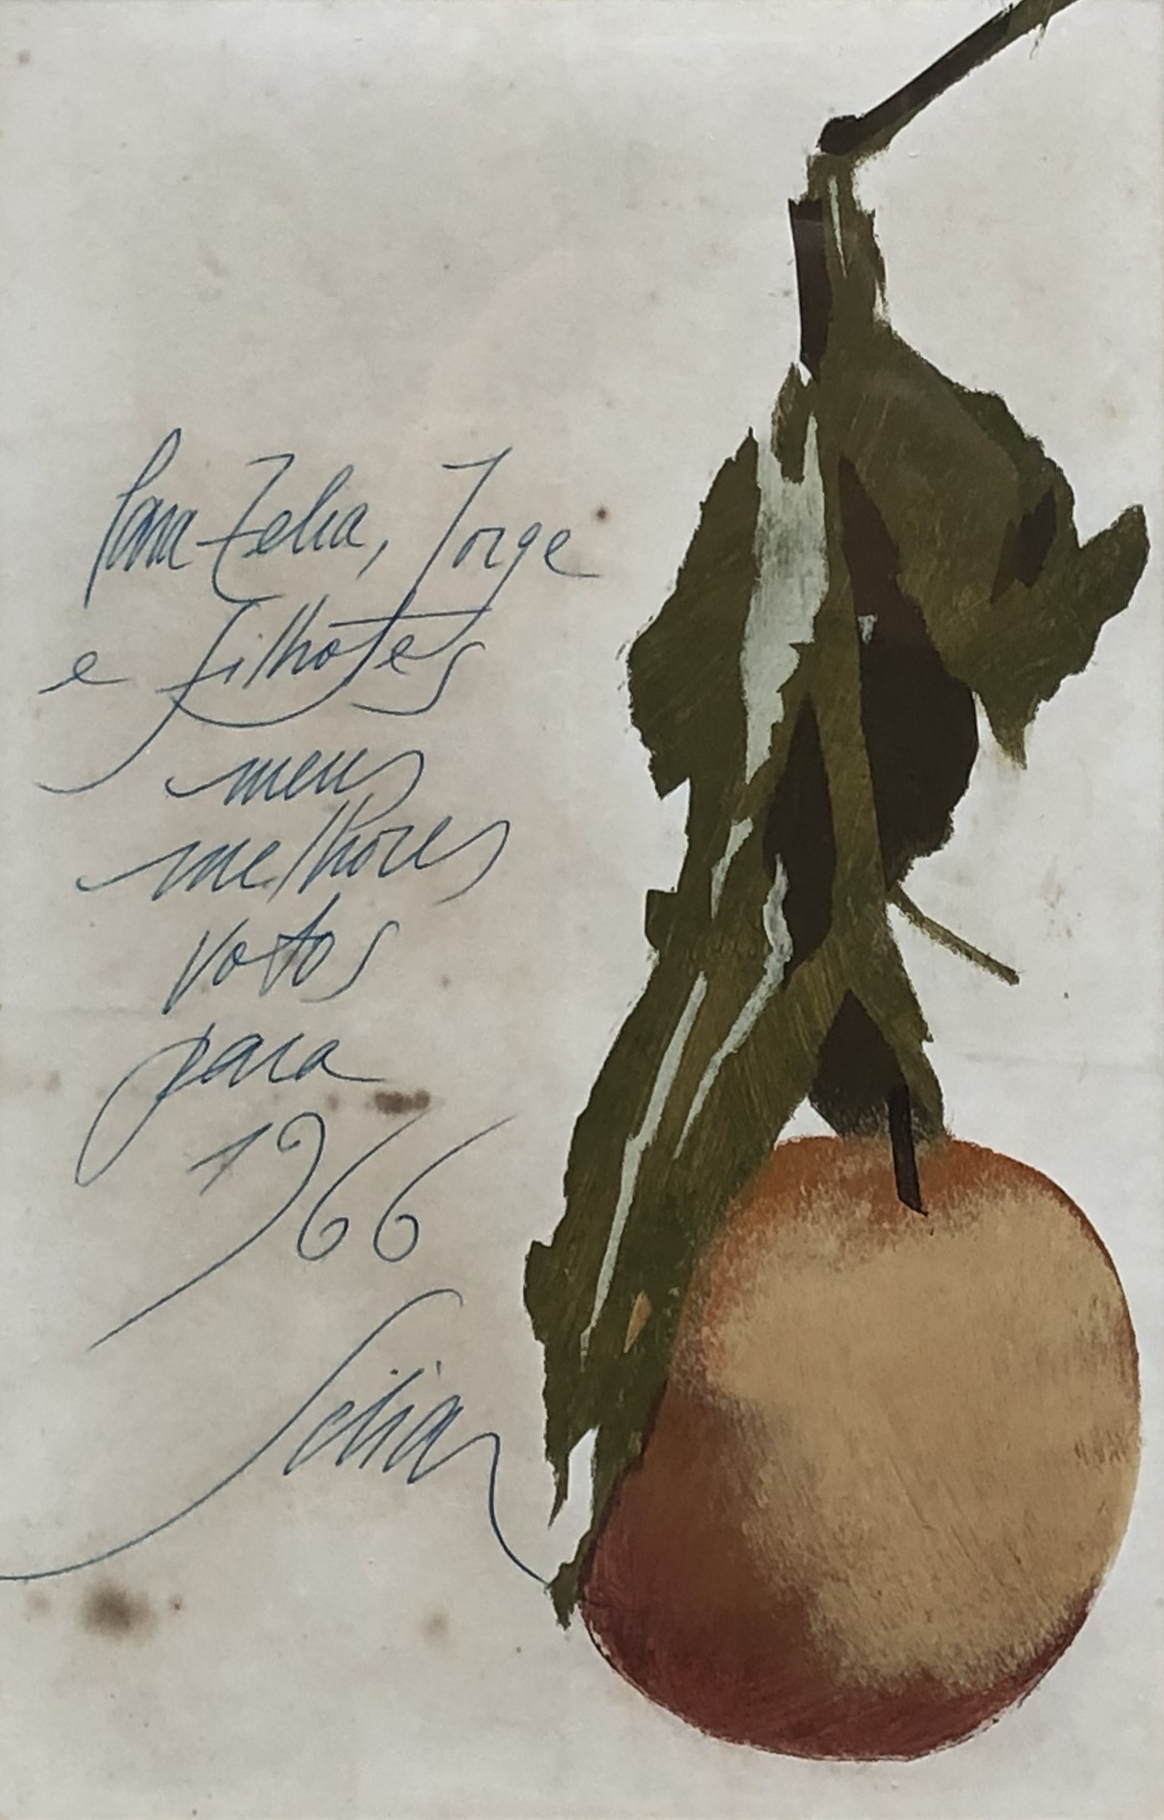 Para Zelia, Jorge
e filhotes
meus
melhores
votos
para
1966